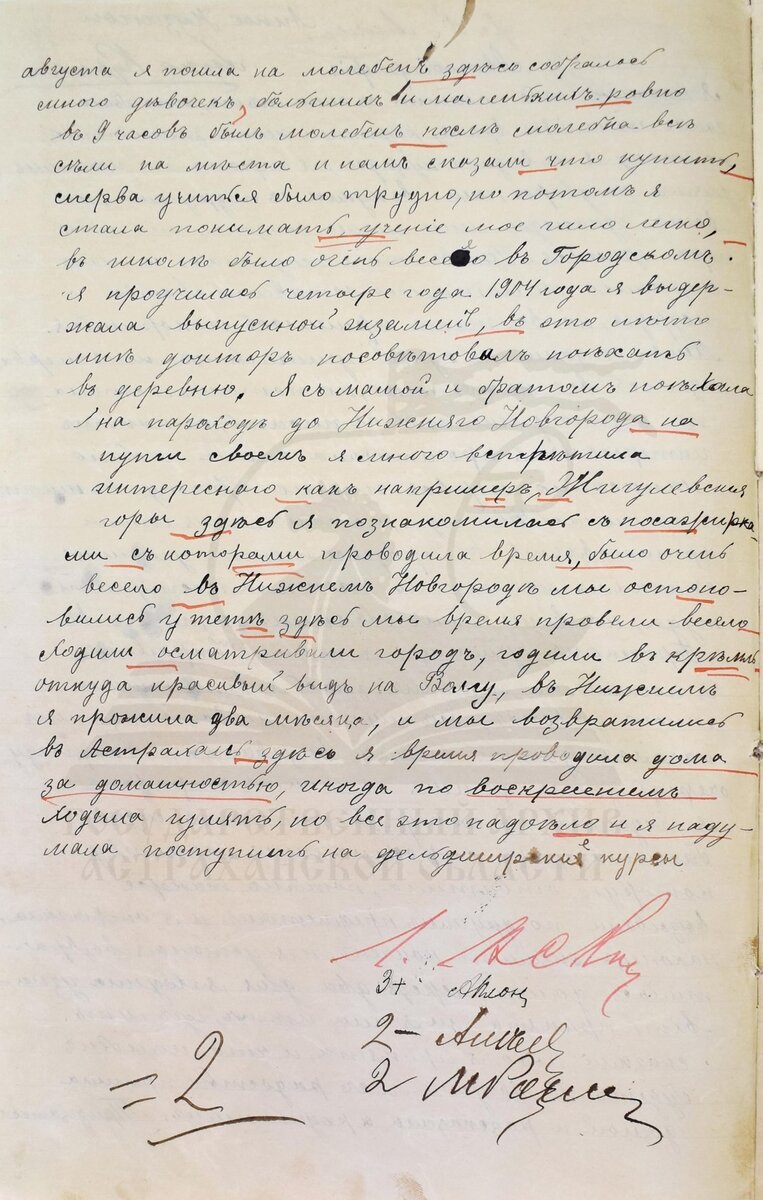 августа я пошла на молебенъ здѣсь собралось
много дѣвочекъ, большихъ и маленькихъ ровно
въ 9 часовъ былъ молебенъ послѣ молебна всѣ
сѣли на мѣста и намъ сказали что купить,
сперва учиться было трудно, но потомъ я
стала понимать, ученіе мое шло легко,
въ школѣ было очень весело въ Городскомъ.
я проучилась четыре года 1904 года я выдер-
жала выпускной экзаменъ, въ это лѣто
мнѣ докторъ посовѣтовалъ поѣхать
въ деревню. Я съ мамой и братомъ поѣхала
на пароходѣ до Нижняго Новгорода на
пути своемъ я много встрѣтила
интереснаго какъ напримеръ, Жигулевския
горы здѣсь я познакомилась съ посажирка-
ми съ которами проводила время, было очень
весело въ Нижнемъ Новгородѣ мы остоно-
вились у тетѣ здѣсь мы время провели весело
ходили осматривали городъ, ходили въ крѣмль
откуда красивый видъ на Волгу, въ Нижнемъ
я прожила два мѣсяца, и мы возвратились
въ Астрахань здѣсь я время проводила дома
за домашностью, иногда по воскресѣнемъ
ходила гулять, но все это надоѣло и я наду-
мала поступить на фельдширския курсы
3+
2-
2
=2
АСТРАХАНСКОЙ ОБЛАСТИ